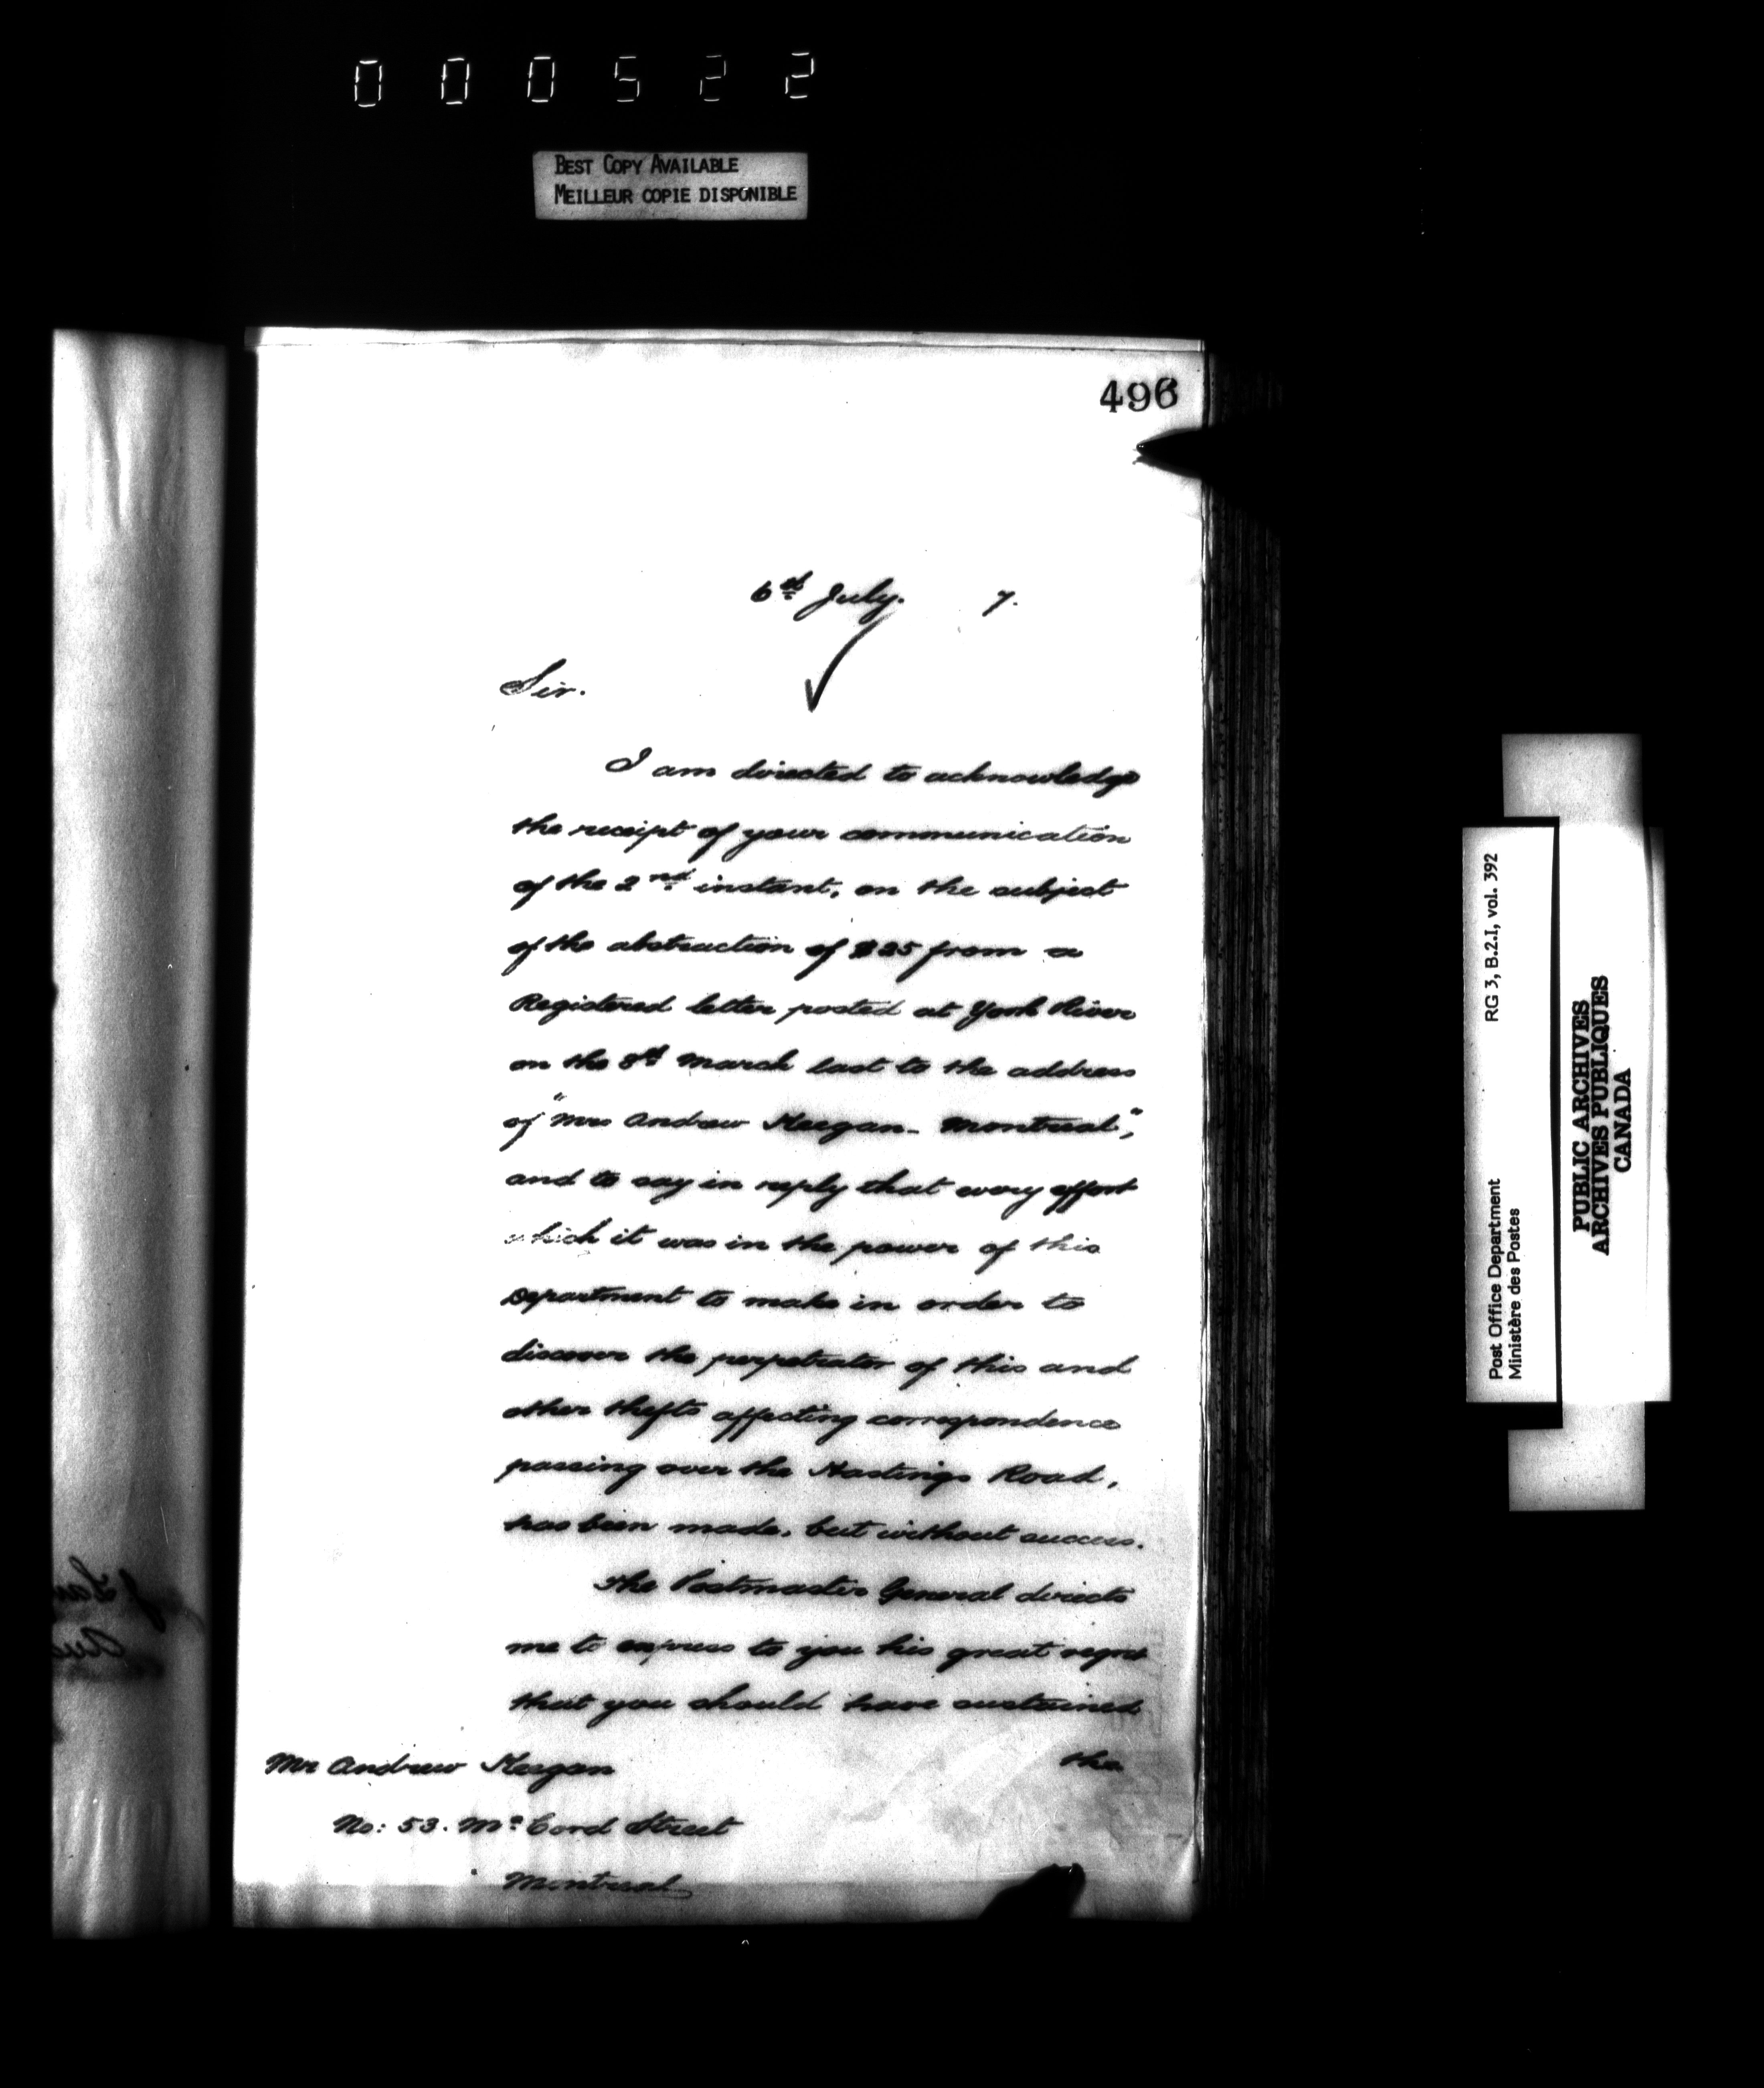 000522
BEST COPY AVAILABLE
MEILLEUR COPIE DISPONIBLE
496
6th July. 7.
Sir.
I am directed to acknowledge
the receipt of your communication
of the 2nd instant, on the subject
of the abstraction of $25 from a
Registered letter posted at York River
on the 8th March last to the address
of "Mrs Andrew Keegan - Montreal",
and to say in reply that every effort
which it was in the power of this
Department to make in order to
discover the perpetrator of this and
other thefts affecting correspondence
passing over the Hastings Road,
has been made, but without success.
The Postmaster General directs
me to express to you his great regret
that you should have sustained
the
Mr Andrew Keegan
No: 53. McCord Street
Montreal
RG 3, B.2.I, vol. 392
Post Office Department
Ministère des Postes
PUBLIC ARCHIVES
ARCHIVES PUBLIQUES
CANADA